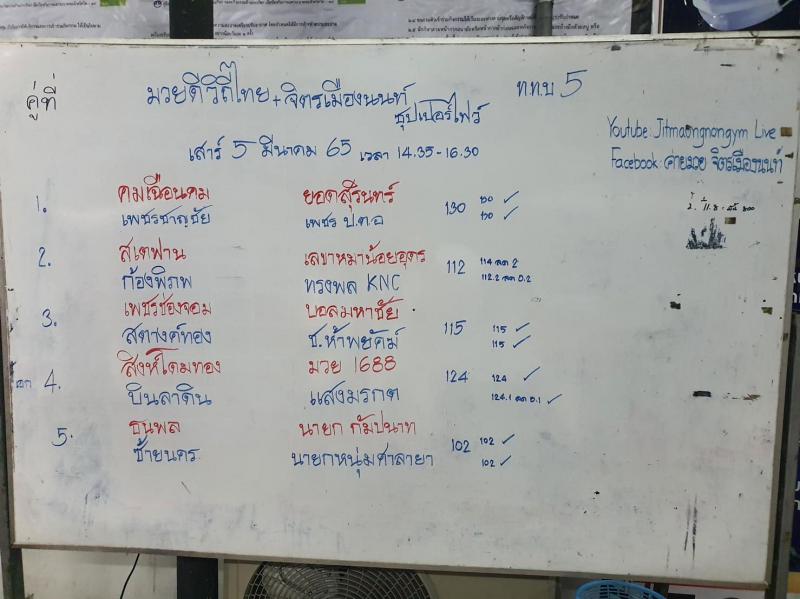 คู่ที่
มวยดีวิถีไทย + จิตรเมืองนนท์
ซุปเปอร์ไฟว์
ท.ท.บ 5
เสาร์ 5 มีนาคม 65 เวลา 14.35-16.30
Youtube: Jitmaongnongym Live
Facebook: ค่ายมวย จิตรเมืองนนท์
1. คมเฉือนคม ยอดสุรินทร์ 130 130 ✓
เพชรชาญชัย เพชร ป.ต.อ 130 ✓
2. สเตฟาน เลขาหมาน้อยอุดร 112 114 ลด 2
ก้องพิภพ ทรงพล KNC 112.2 ลด 0.2
3. เพชรช่องจอม บอลมหาชัย 115 115 ✓
สตางค์ทอง ช.ห้าพยัคฆ์ 115 ✓
4. สิงห์โดมทอง มวย 1688 124 124 ✓
บินลาดิน แสงมรกต 124.1 ลด 0.1 ✓
5. ธนพล นายก กัมปนาท 102 102 ✓
ซ้ายนคร นายกหนุ่มศาลายา 102 ✓